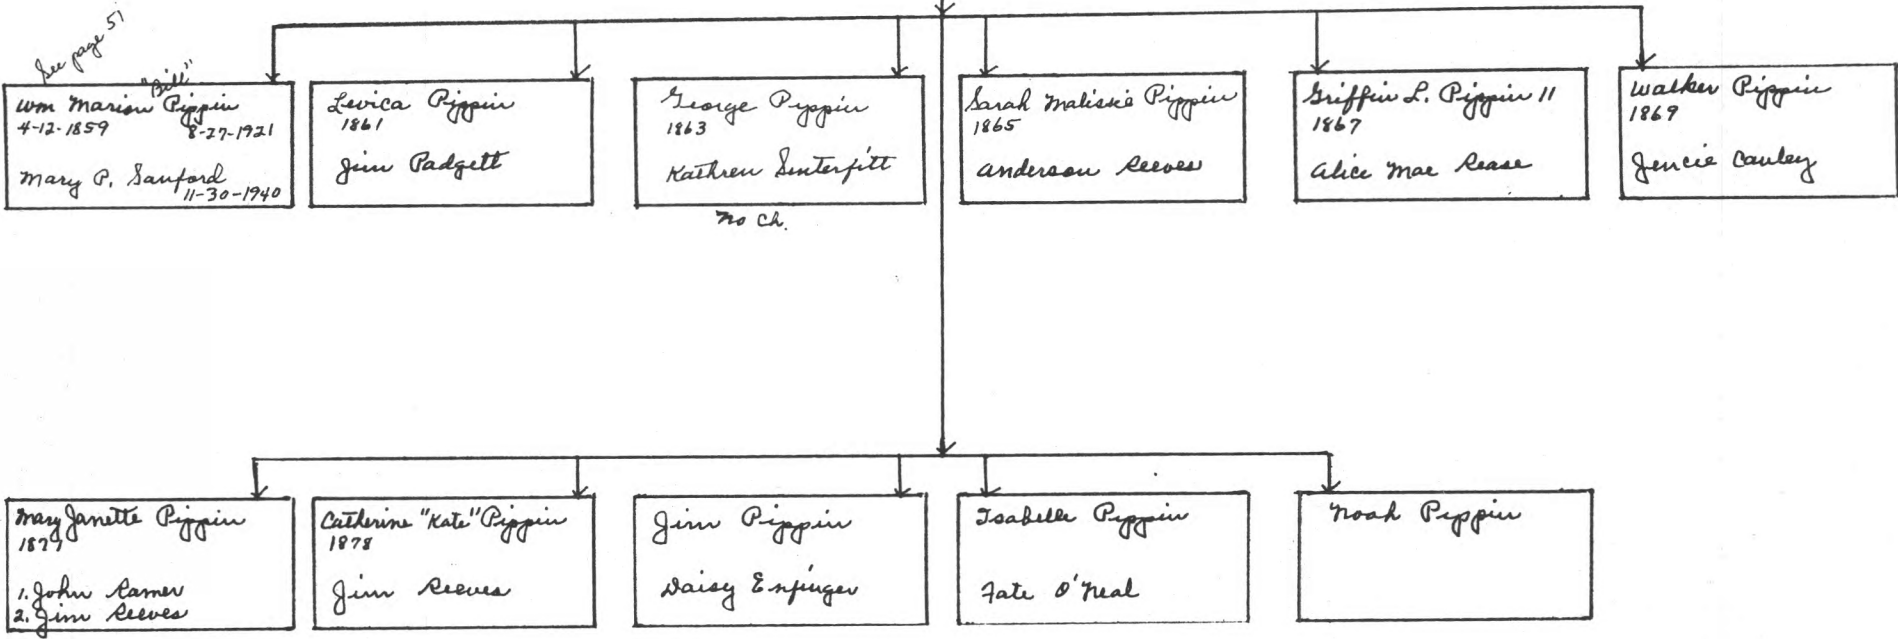 See page 51
"Bill"
Wm Marion Pippin
4-12-1859 8-27-1921
Mary P. Sanford
11-30-1940
Levica Pippin
1861
Jim Padgett
George Pippin
1863
Kathren Senterfitt
No Ch.
Sarah Malissie Pippin
1865
Anderson Reeves
Griffin L. Pippin 11
1867
Alice Mae Rease
Walker Pippin
1869
Jencie Cauley
Mary Janette Pippin
1877
1. John Ramer
2. Jim Reeves
Catherine "Kate" Pippin
1878
Jim Reeves
Jim Pippin
Daisy Enfinger
Isabelle Pippin
Fate O'Neal
Noah Pippin